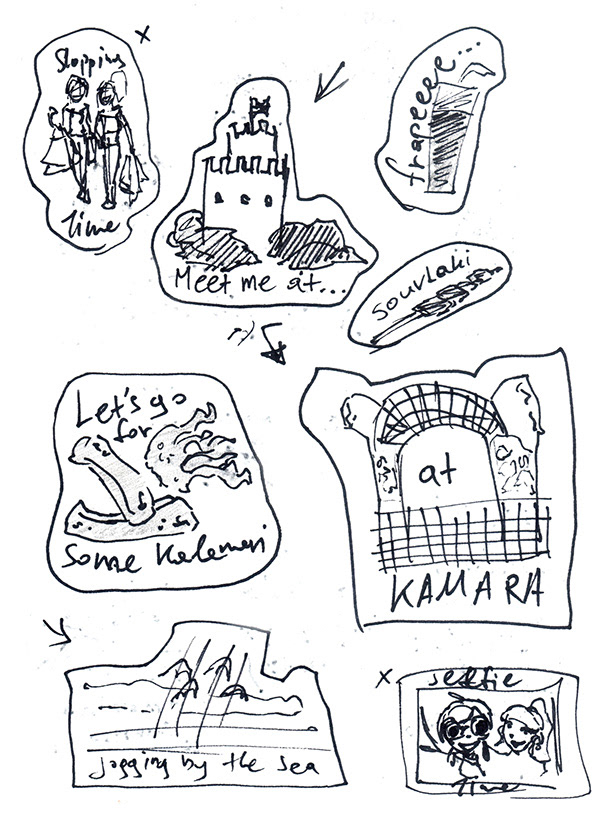 Shopping
Time
Meet me at...
frapeeee...
souvlaki
Let's go
for
some kalamari
at
KAMARA
jogging by the sea
selfie
Time